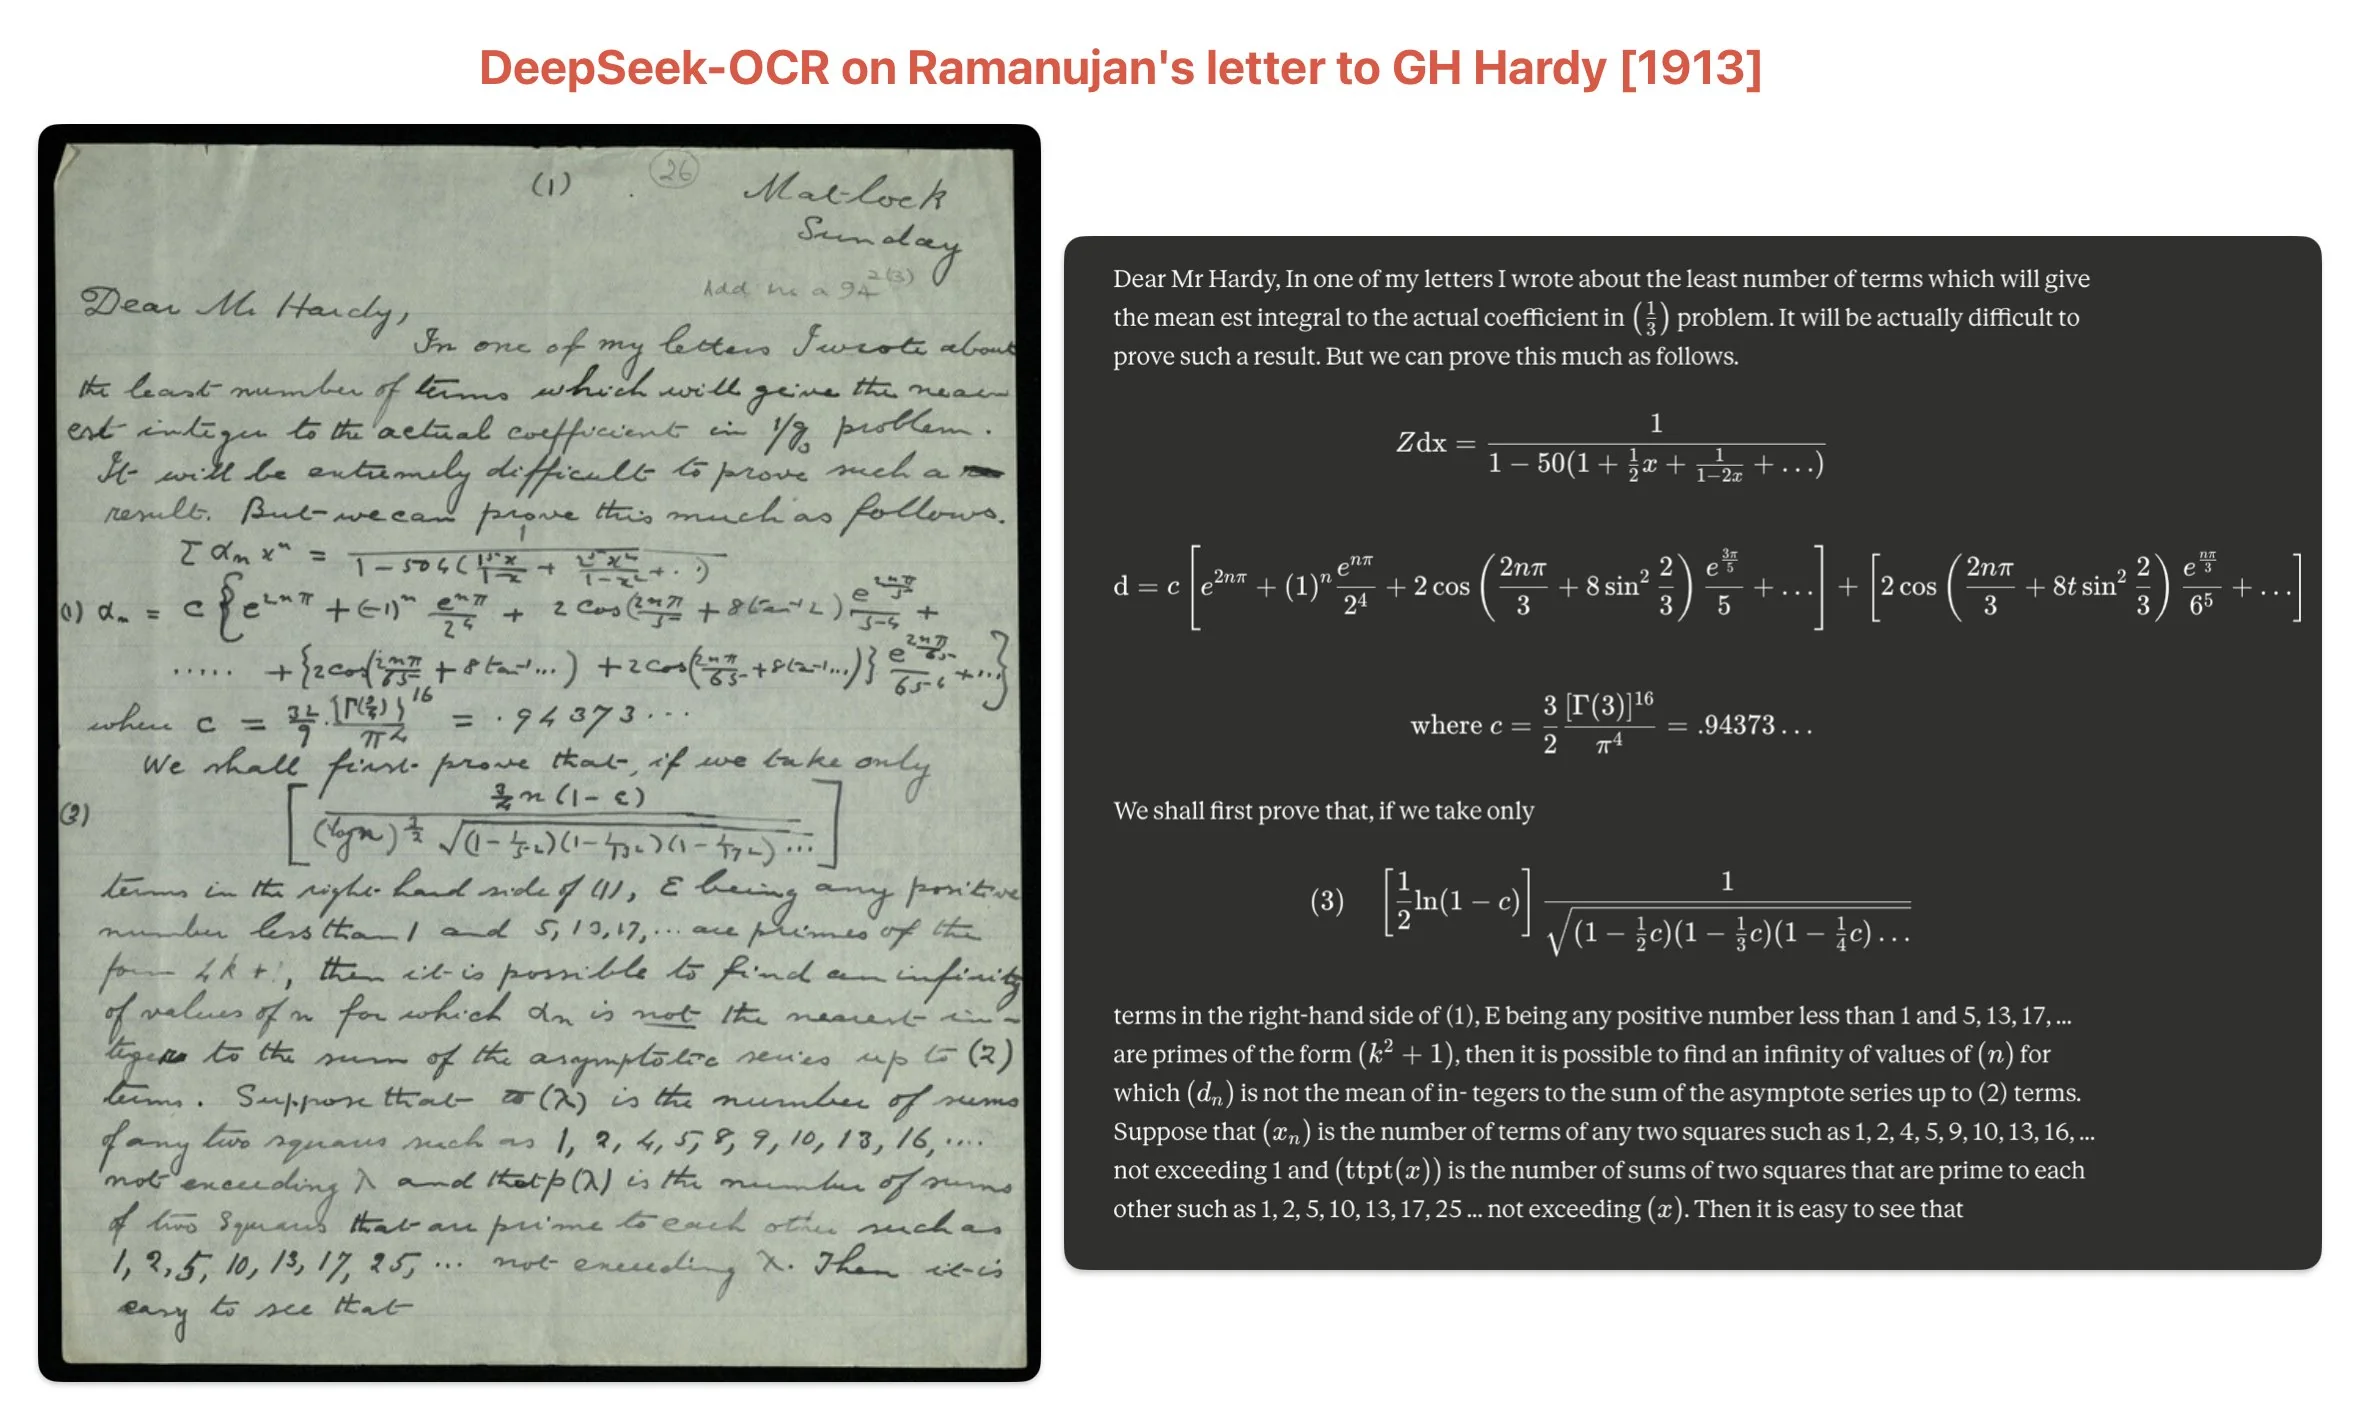 DeepSeek-OCR on Ramanujan's letter to GH Hardy [1913]
(1)
26
Matlock
Sunday
Add
Dear Mr Hardy,
In one of my letters I wrote about
the least number of terms which will geive the near
est integer to the actual coefficient in 1/g₃ problem.
It will be extremely difficult to prove such a
result. But we can prove this much as follows.
Σ αₙ xⁿ = 1 / (1 - 504(1⁵x/(1-x) + 2⁵x²/(1-x²) + ..))
(1) αₙ = c { e^(2nπ) + (-1)ⁿ e^(nπ)/2⁴ + 2 cos(2nπ/5 + 8 tan⁻¹ 2) e^(2nπ/5)/5⁴ +
..... + {2 cos(2nπ/65 + 8 tan⁻¹...) + 2 cos(2nπ/65 + 8 tan⁻¹...)} e^(2nπ/65)/65⁴ + ...}
where c = .94373...
We shall first prove that, if we take only
(2) [ ¾n (1-ε) / ((log n)^½ √((1 - 1/5²)(1 - 1/13²)(1 - 1/17²)...)) ]
terms in the right hand side of (1), ε being any positive
number less than 1 and 5, 13, 17, ... are primes of the
form 4k+1, then it is possible to find an infinity
of values of n for which αₙ is not the nearest in-
teger to the sum of the asymptotic series up to (2)
terms. Suppose that ϖ(λ) is the number of sums
of any two squares such as 1, 2, 4, 5, 8, 9, 10, 13, 16, ....
not exceeding λ and that p(λ) is the number of sums
of two squares that are prime to each other such as
1, 2, 5, 10, 13, 17, 25, ... not exceeding λ. Then it is
easy to see that
Dear Mr Hardy, In one of my letters I wrote about the least number of terms which will give
the mean est integral to the actual coefficient in (1/3) problem. It will be actually difficult to
prove such a result. But we can prove this much as follows.
Zdx = 1 / (1 − 50(1 + ½x + 1/(1−2x) + ...))
d = c [e^(2nπ) + (1)ⁿ e^(nπ)/2⁴ + 2 cos (2nπ/3 + 8 sin² 2/3) e^(3π/5)/5 + ...] + [2 cos (2nπ/3 + 8t sin² 2/3) e^(nπ/3)/6⁵ + ...]
where c = 3/2 [Γ(3)]¹⁶/π⁴ = .94373...
We shall first prove that, if we take only
(3) [½ ln(1 − c)] 1 / √((1 − ½c)(1 − ⅓c)(1 − ¼c)...
terms in the right-hand side of (1), E being any positive number less than 1 and 5, 13, 17, ...
are primes of the form (k² + 1), then it is possible to find an infinity of values of (n) for
which (dₙ) is not the mean of in- tegers to the sum of the asymptote series up to (2) terms.
Suppose that (xₙ) is the number of terms of any two squares such as 1, 2, 4, 5, 9, 10, 13, 16, ...
not exceeding 1 and (ttpt(x)) is the number of sums of two squares that are prime to each
other such as 1, 2, 5, 10, 13, 17, 25 ... not exceeding (x). Then it is easy to see that